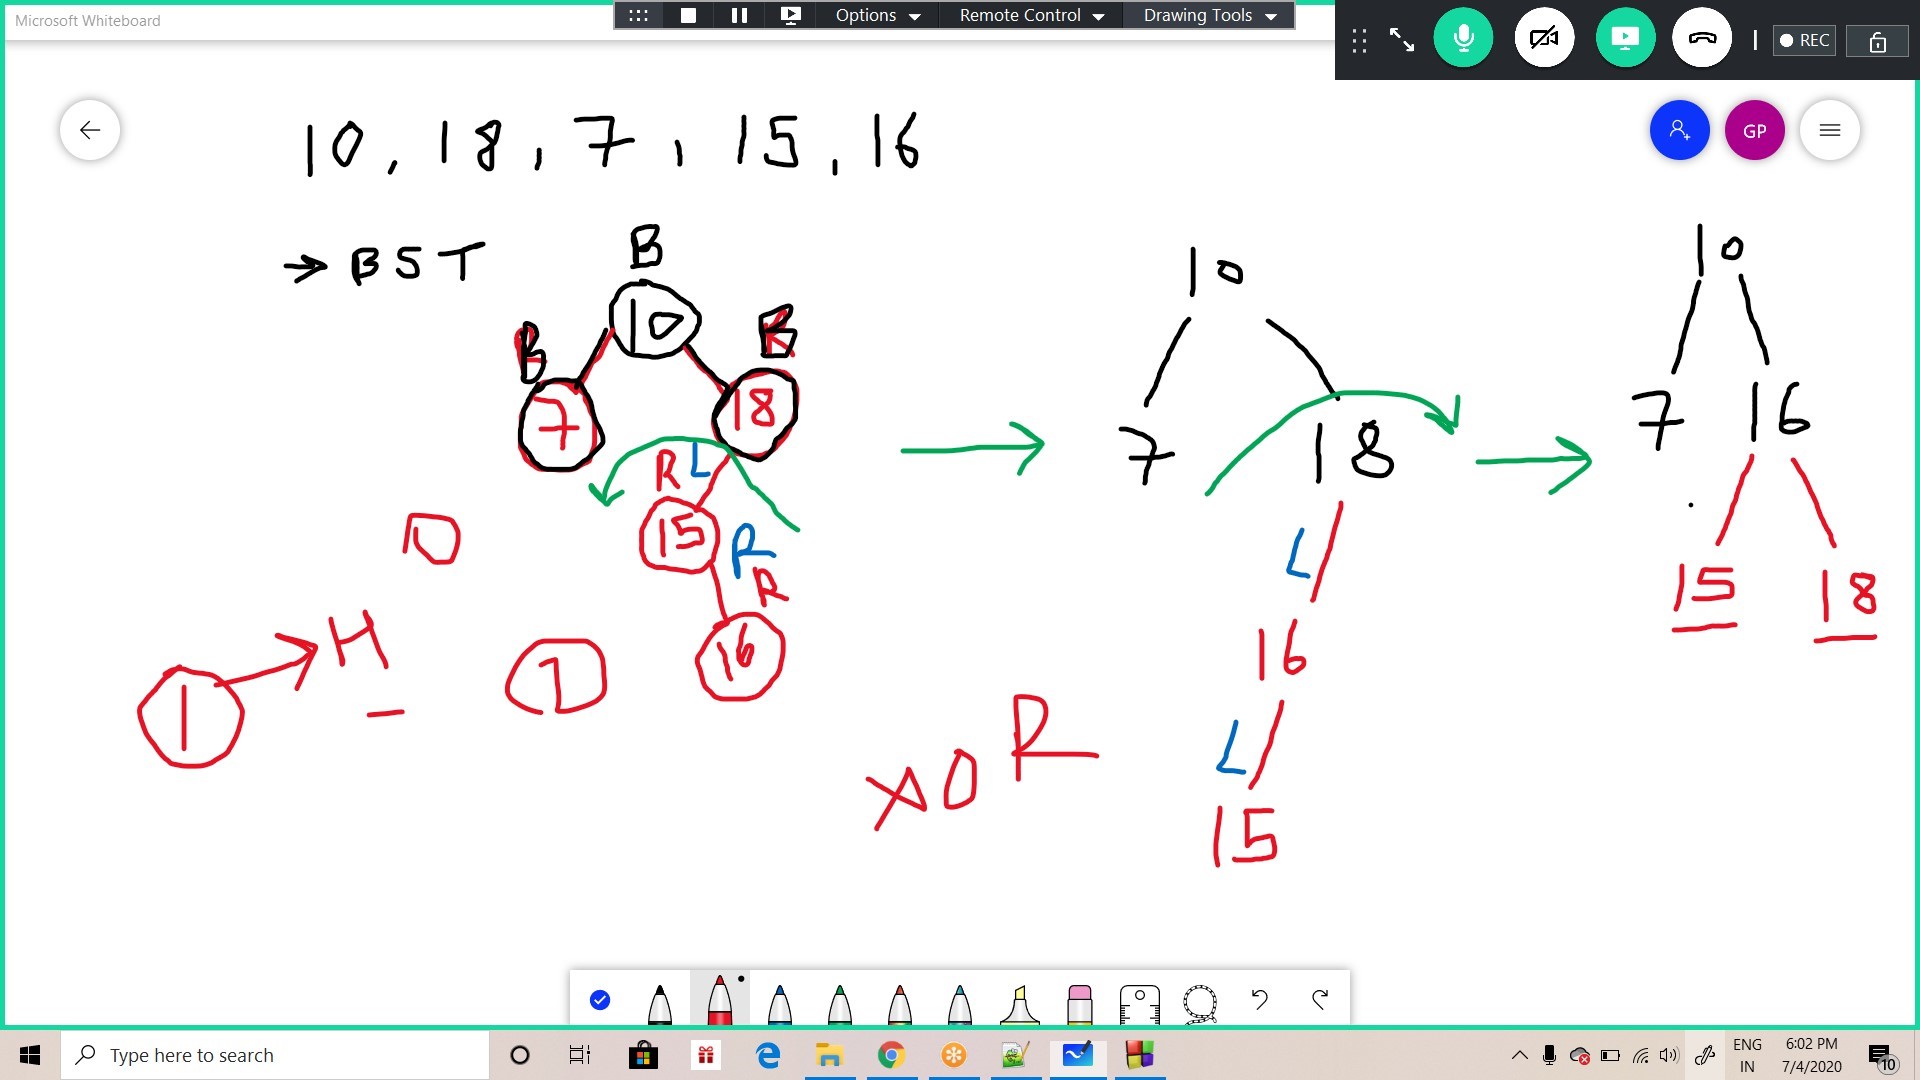 Microsoft Whiteboard
Options
Remote Control
Drawing Tools
REC
GP
10, 18, 7, 15, 16
→ BST
B
10
B
B
7
18
R L
15
R
R
16
1
H
10
7 18
L
16
L
15
10
7 16
15 18
R
Type here to search
ENG
IN
6:02 PM
7/4/2020
10